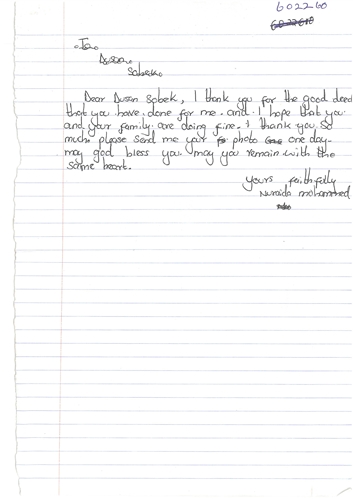 602260
To
Dusan
Sobek
Dear Dusan Sobek, I thank you for the good deed
that you have done for me. and I hope that you
and your family are doing fine. I thank you so
much. please send me your photo one day.
may god bless you. may you remain with the
same heart.
Yours faithfully
mohammed